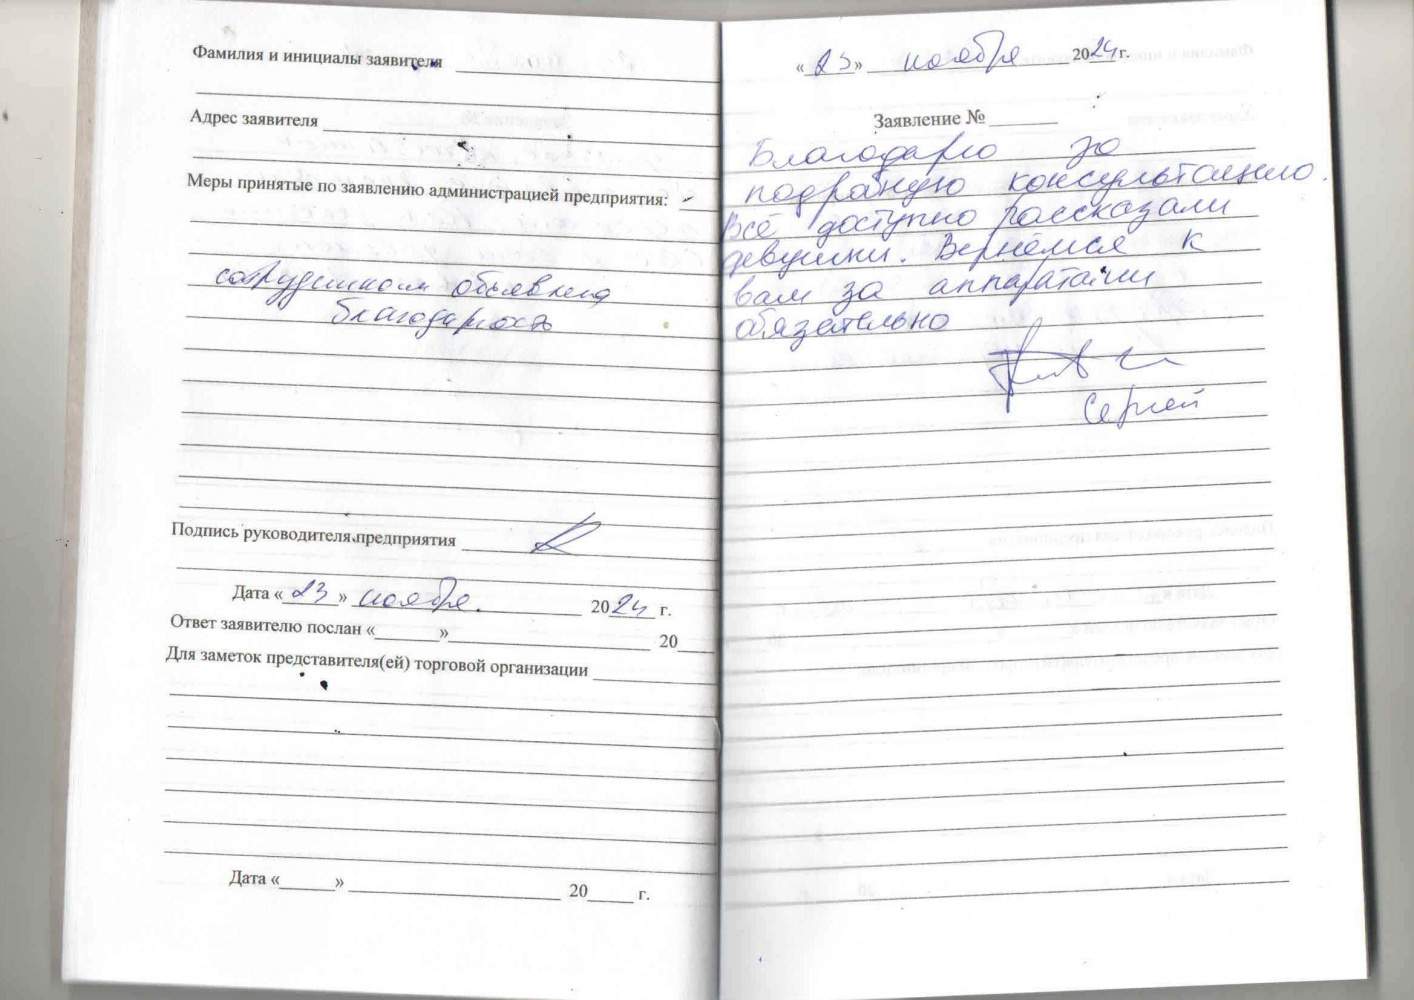 Фамилия и инициалы заявителя
Адрес заявителя
Меры принятые по заявлению администрацией предприятия:
сотрудникам объявлена
благодарность
Подпись руководителя предприятия
Дата «23» ноября. 2024 г.
Ответ заявителю послан «      » 20
Для заметок представителя(ей) торговой организации
Дата «      » 20      г.
«23» ноября 2024 г.
Заявление №
Благодарю за
подрабную консультацию.
Всё доступно рассказали
девушки. Вернёмся к
вам за аппаратами
обязательно
Сергей